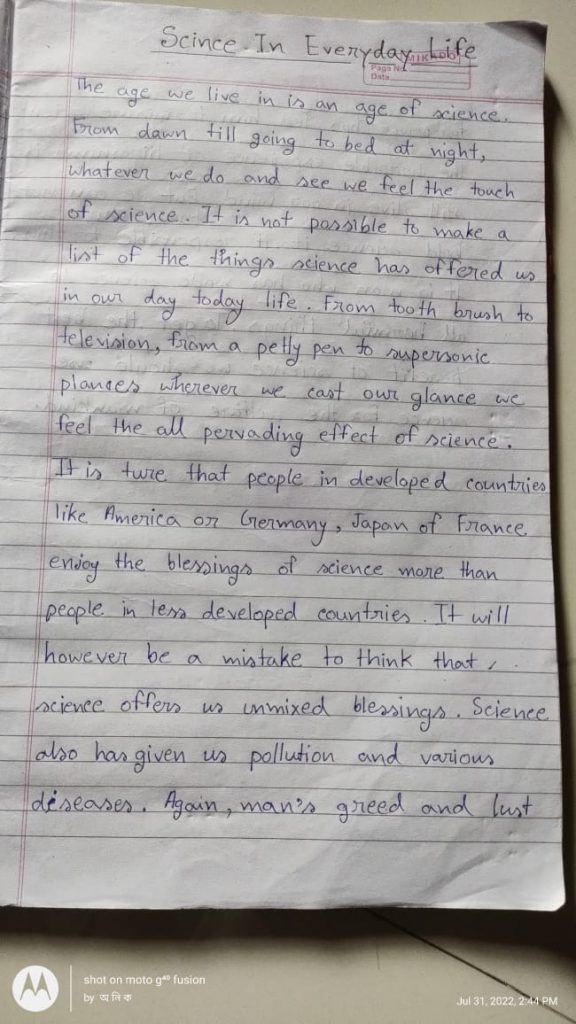 Scince In Everyday Life
MIKADO
Page No
Date
The age we live in is an age of science.
From dawn till going to bed at night,
whatever we do and see we feel the touch
of science. It is not possible to make a
list of the things science has offered us
in our day today life. From tooth brush to
television, from a petly pen to supersonic
plances wherever we cast our glance we
feel the all pervading effect of science.
It is ture that people in developed countries
like America or Germany, Japan of France
enjoy the blessings of science more than
people in less developed countries. It will
however be a mistake to think that,
science offers us unmixed blessings. Science
also has given us pollution and various
diseases. Again, man's greed and lust
shot on moto g⁴⁰ fusion
by অনিক
Jul 31, 2022, 2:44 PM